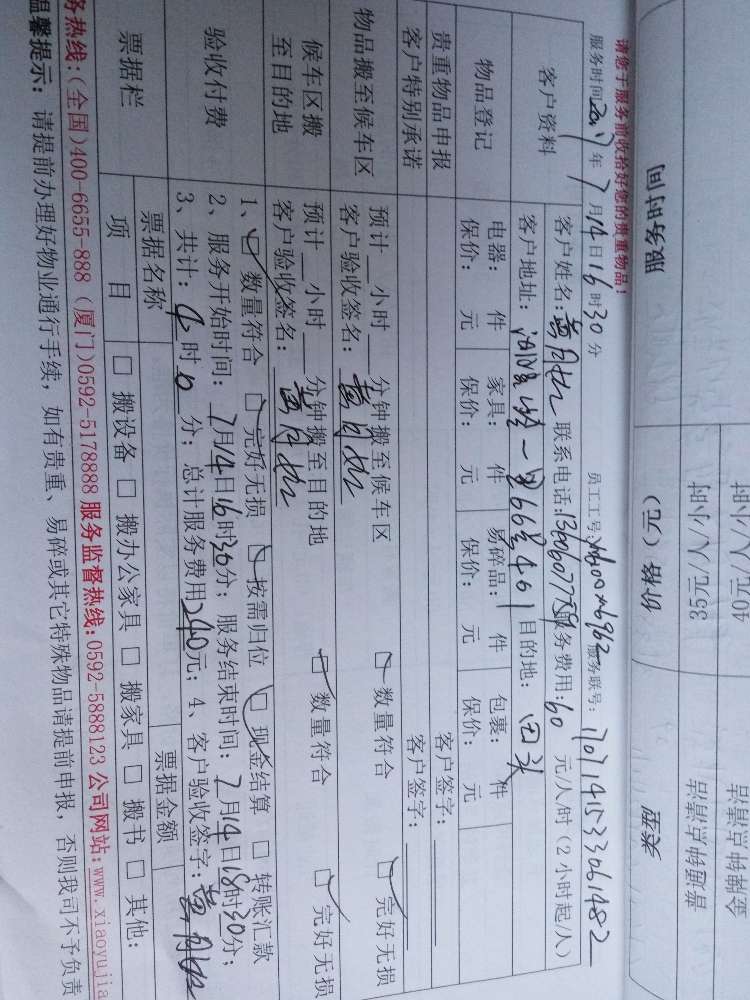 服务时间
价格（元）
类型
35元/人/小时
普通钟点清洁
40元/人/小时
金牌钟点清洁
请您于服务前收拾好您的贵重物品！
服务时间2017年7月14日16时30分 员工工号: 服务联号: 1707141533061482
客户资料
客户姓名: 联系电话: 服务费用: 60 元/人/时（2小时起/人）
客户地址: 一里66号401 目的地: 田头
物品登记
电器: 件 家具: 件 易碎品: 件 包裹: 件
保价: 元 保价: 元 保价: 元 保价: 元
贵重物品申报 客户签字:
客户特别承诺 客户签字:
物品搬至候车区
预计__小时__分钟搬至候车区 ☑ 数量符合 ☑ 完好无损
客户验收签名:
候车区搬至目的地
预计__小时__分钟搬至目的地 ☑ 数量符合 ☑ 完好无损
客户验收签名:
验收付费
1、☑ 数量符合 ☑ 完好无损 ☑ 按需归位 ☑ 现金结算 □ 转账汇款
2、服务开始时间: 7月14日16时30分; 服务结束时间: 7月14日18时30分;
3、共计: 4时0分; 总计服务费用240元; 4、客户验收签字:
票据栏
票据名称 票据金额
项目 □ 搬设备 □ 搬办公家具 □ 搬家具 □ 搬书 □ 其他:
务热线:(全国)400-6655-888 (厦门)0592-5178888 服务监督热线:0592-5888123 公司网站:www.xiaoyujia
温馨提示: 请提前办理好物业通行手续，如有贵重、易碎或其它特殊物品请提前申报，否则我司不予负责